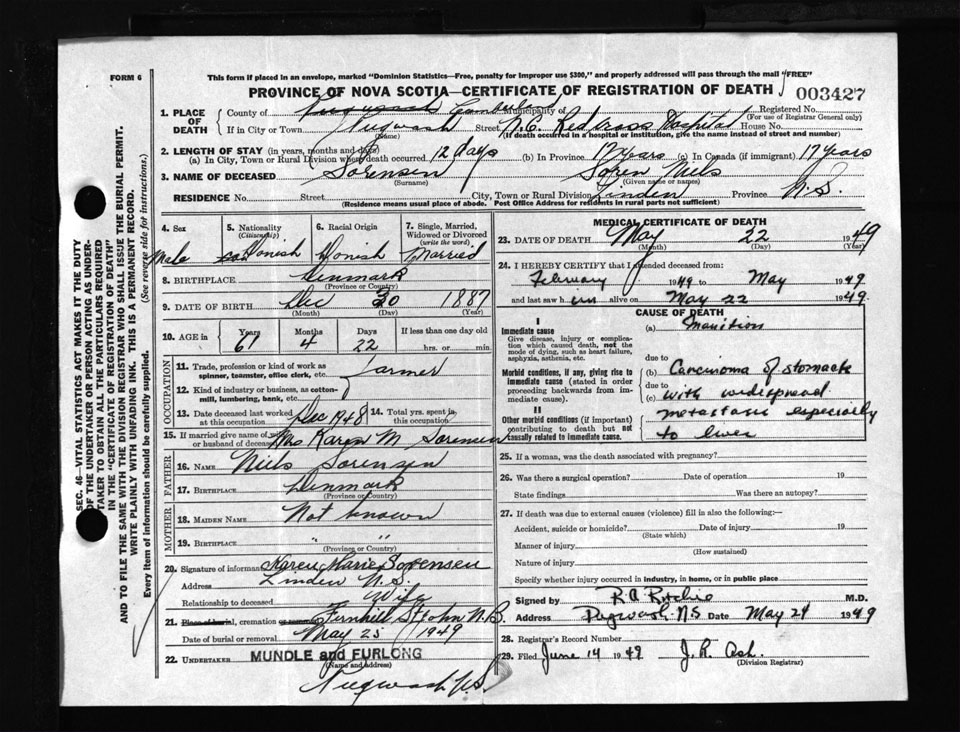 FORM 6
This form if placed in an envelope, marked "Dominion Statistics—Free, penalty for improper use $300," and properly addressed will pass through the mail "FREE"
PROVINCE OF NOVA SCOTIA—CERTIFICATE OF REGISTRATION OF DEATH
003427
1. PLACE OF DEATH
County of Cumberland Municipality of Registered No.
(For use of Registrar General only)
If in City or Town Pugwash Street N.C. Red Cross Hospital House No.
(Name) (If death occurred in a hospital or institution, give the name instead of street and number)
2. LENGTH OF STAY (in years, months and days)
(a) In City, Town or Rural Division where death occurred 12 days (b) In Province 17 years (c) In Canada (if immigrant) 17 years
3. NAME OF DECEASED Sorensen Soren Niels
(Surname) (Given name or names)
RESIDENCE No. Street City, Town or Rural Division Linden Province N.S.
(Residence means usual place of abode. Post Office Address for residents in rural parts not sufficient)
4. Sex Male
5. Nationality (Citizenship) Donish
6. Racial Origin Donish
7. Single, Married, Widowed or Divorced (write the word) Married
8. BIRTHPLACE Denmark
(Province or Country)
9. DATE OF BIRTH Dec 30 1887
(Month) (Day) (Year)
10. AGE in Years 67 Months 4 Days 22 If less than one day old hrs. or min
OCCUPATION
11. Trade, profession or kind of work as spinner, teamster, office clerk, etc. Farmer
12. Kind of industry or business, as cotton-mill, lumbering, bank, etc.
13. Date deceased last worked at this occupation Dec 1948 14. Total yrs. spent in this occupation
15. If married give name of wife or husband of deceased Mrs Karen M Sorensen
FATHER
16. NAME Niels Sorensen
17. BIRTHPLACE Denmark
(Province or Country)
MOTHER
18. MAIDEN NAME Not known
19. BIRTHPLACE " "
(Province or Country)
20. Signature of informant Karen Marie Sorensen
Address Linden N.S.
Relationship to deceased Wife
21. Place of burial, cremation or removal Fernhill St John N.B.
Date of burial or removal May 25 1949
22. UNDERTAKER MUNDLE and FURLONG
(Name and address)
Pugwash N.S.
MEDICAL CERTIFICATE OF DEATH
23. DATE OF DEATH May 22 1949
(Month) (Day) (Year)
24. I HEREBY CERTIFY that I attended deceased from:
February 1949 to May 1949
and last saw him alive on May 22 1949.
CAUSE OF DEATH
I
Immediate cause
Give disease, injury or complication which caused death, not the mode of dying, such as heart failure, asphyxia, asthenia, etc.
(a) Inanition
due to
Morbid conditions, if any, giving rise to immediate cause (stated in order proceeding backwards from immediate cause).
(b) Carcinoma of stomach
due to
(c) with widespread
II
Other morbid conditions (if important) contributing to death but not causally related to immediate cause.
metastasis especially
to liver
25. If a woman, was the death associated with pregnancy?
26. Was there a surgical operation? Date of operation 19
State findings Was there an autopsy?
27. If death was due to external causes (violence) fill in also the following:—
Accident, suicide or homicide? Date of injury 19
(State which)
Manner of injury
(How sustained)
Nature of injury
Specify whether injury occurred in industry, in home, or in public place
Signed by R.A. Ritchie M.D.
Address Pugwash N.S Date May 24 1949
28. Registrar's Record Number
29. Filed June 14 1949 J. R. Ash.
(Division Registrar)
SEC. 46—VITAL STATISTICS ACT MAKES IT THE DUTY
OF THE UNDERTAKER OR PERSON ACTING AS UNDER-
TAKER TO OBTAIN ALL THE PARTICULARS REQUIRED
IN THE "CERTIFICATE OF REGISTRATION OF DEATH"
AND TO FILE THE SAME WITH THE DIVISION REGISTRAR WHO SHALL ISSUE THE BURIAL PERMIT.
WRITE PLAINLY WITH UNFADING INK. THIS IS A PERMANENT RECORD.
Every item of information should be carefully supplied. (See reverse side for instructions.)